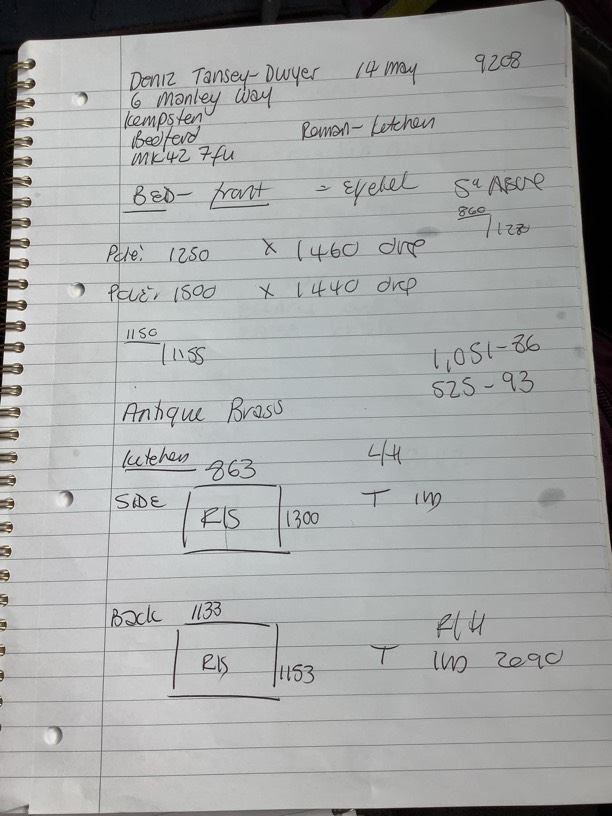 Deniz Tansey-Dwyer 14 May 9208
6 Manley Way
Kempsten
Bedford Roman-Kitchen
MK42 7fu
BED- front = Eyelet 5" ABove
860 /1220
Pole: 1250 x 1460 drop
Pole: 1500 x 1440 drop
1150 /1155
1,051-86
525-93
Antique Brass
Kitchen 863 L/H
SIDE R/S 1300 T
Back 1133 R/H
R/S 1153 T